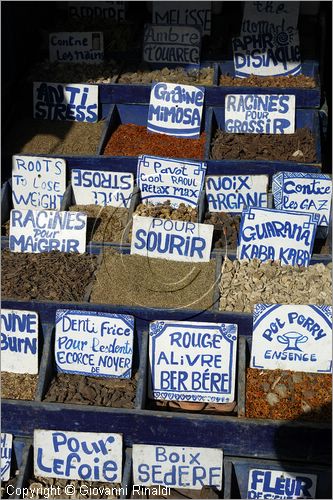 MELISSE
Contre
les Nains
Ambre
TOUAREG
the
APHRO
DISIAQUE
ANTI
STRESS
Graine
MIMOSA
RACINES
Pour
GROSSIR
ROOTS
TO LOSE
WEIGHT
STRESS
Pavot
Cool Raoul
RELAX MAX
NOIX
ARGANE
Contre
les GAZ
RACINES
Pour
MAIGRIR
POUR
SOURIR
GUARANA
KABA KABA
BURN
DENTi FRICE
POUR les dents
ECORCE NOYER
DE
ROUGE
A LIVRE
BER BÉRE
Pot Porry
ENCENSE
Pour
LeFoie
Boix
SEDERE
FLEUR
© Andrea Rinaldi